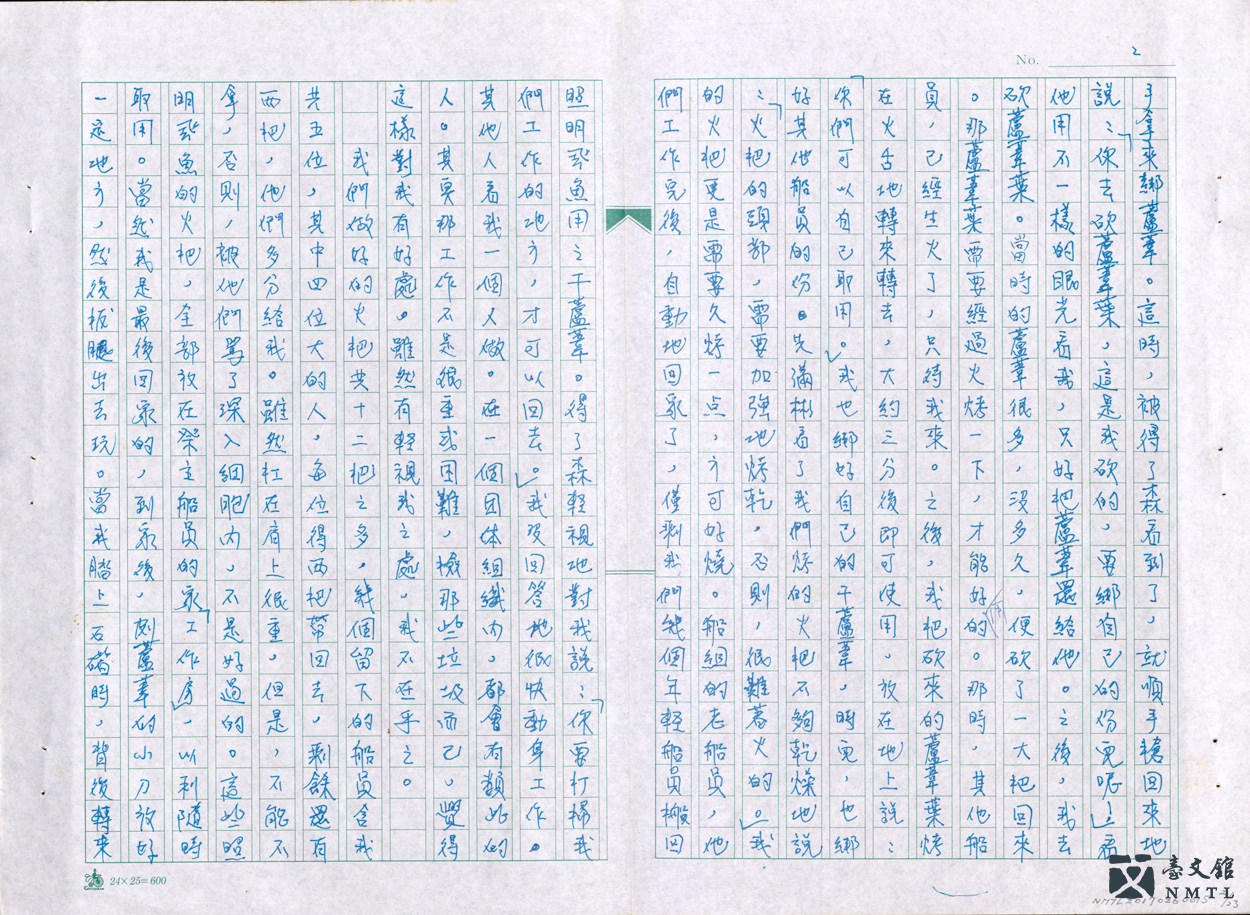 No. 2
手拿來綁蘆葦。這時，被得了森看到了，就順手搶回來地
說：「你去砍蘆葦葉，這是我砍的，要綁自己的份兒呢！」看
他用不一樣的眼光看我，只好把蘆葦還給他。之後，我去
砍蘆葦葉。當時的蘆葦很多，沒多久，便砍了一大把回來
。那蘆葦葉需要經過火烤一下，才能好的。那時，其他船
員，已經生火了，只待我來。之後，我把砍來的蘆葦葉烤
在火舌地轉來轉去，大約三分後即可使用。放在地上說：
「你們可以自己取用。」我也綁好自己的干蘆葦，時兒，也綁
好其他船員的份。先滿彬看了我們烤的火把不夠乾燥地說
：「火把的頭部，需要加強地烤乾，否則，很難著火的。」我
的火把更是需要久烤一点，方可好燒。船組的老船員，他
們工作完後，自動地回家了，僅剩我們幾個年輕船員搬回
照明飛魚用之干蘆葦。得了森輕視地對我說：「你要打掃我
們工作的地方，才可以回去。」我沒回答地很快動身工作。
其他人看我一個人做。在一個团体組織內，都會有類此的
人。其實那工作不是很重或困難，撿那些垃圾而已，覺得
這樣對我有好處。雖然有輕視我之處，我不在乎之。
我們做好的火把共十二把之多，幾個留下的船員含我
共五位，其中四位大的人，每位得两把帶回去，剩餘還有
两把，他們多分給我。雖然扛在肩上很重，但是，不能不
拿，否則，被他們罵了深入細胞內，不是好過的。這些照
明飛魚的火把，全部放在祭主船員的家「工作房」，以利隨時
取用。當然我是最後回家的，到家後，刮蘆葦的小刀放好
一定地方，然後板腿出去玩。當我踏上石階時，背後轉来
24×25=600
臺文館
NMTL